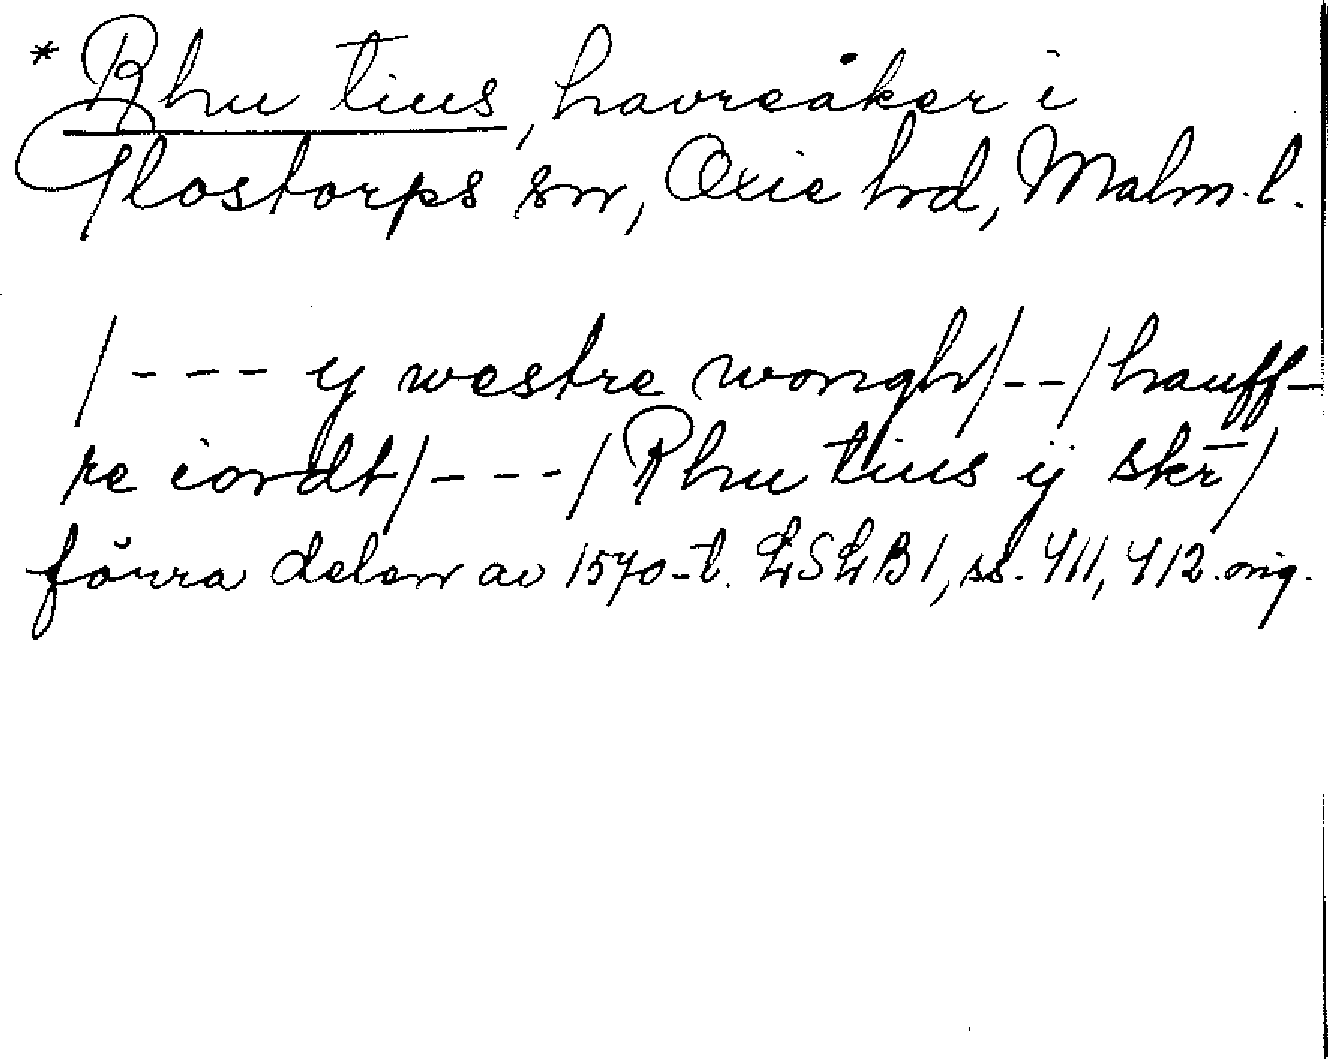 * Rhu tius, havreåker i
Glostorps sn, Oxie hd, Malm.l.
/--- y westre wongh/--/hauff-
re iordt/---/Rhu tius ij skr̅/
förra delen av 1570-t. LSLB1, ss. 411, 412. orig.